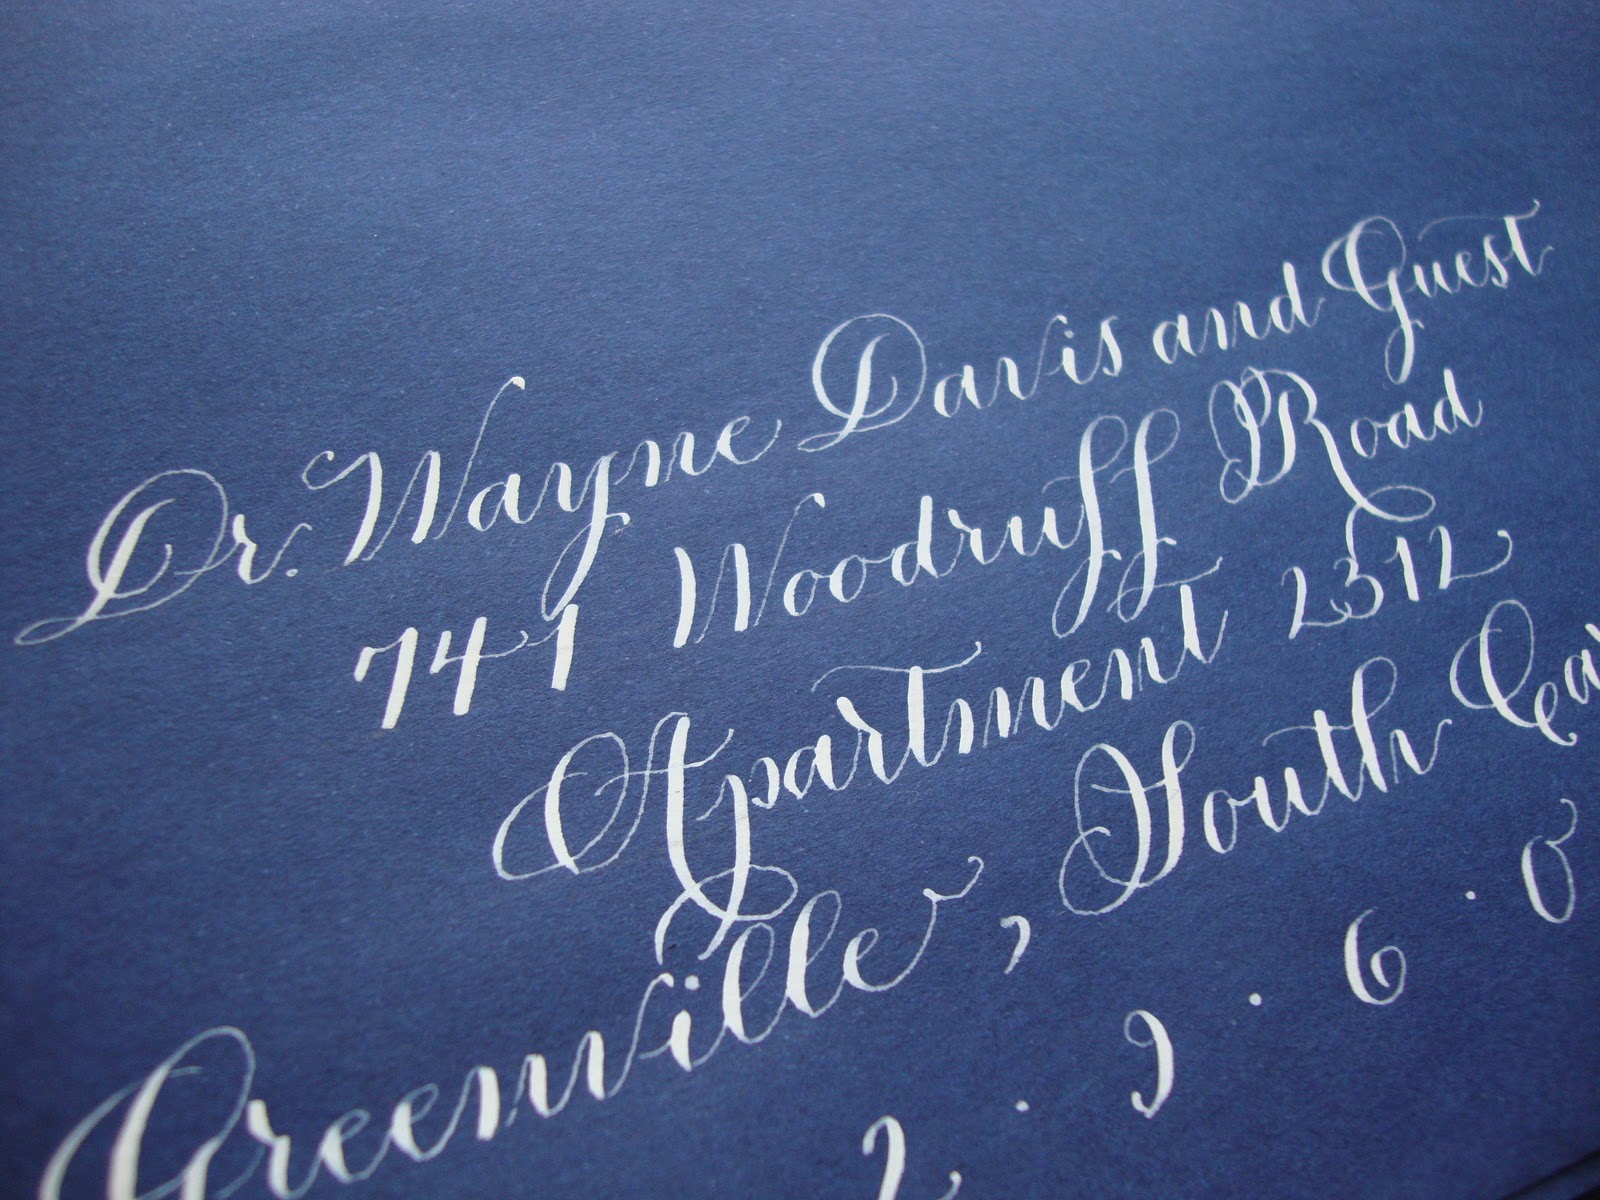 Dr. Wayne Davis and Guest
741 Woodruff Road
Apartment 2312
Greenville, South Ca
2 . 9 . 6 . 0